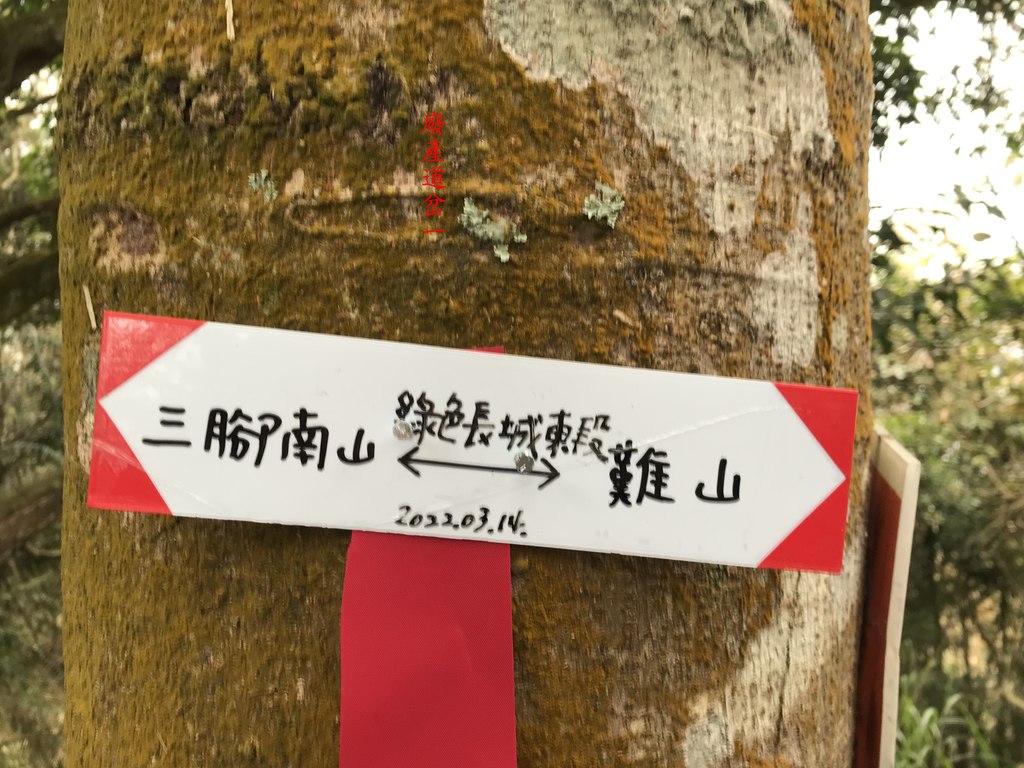 廢產道岔一
三腳南山
綠色長城東段
難山
2022.03.14.